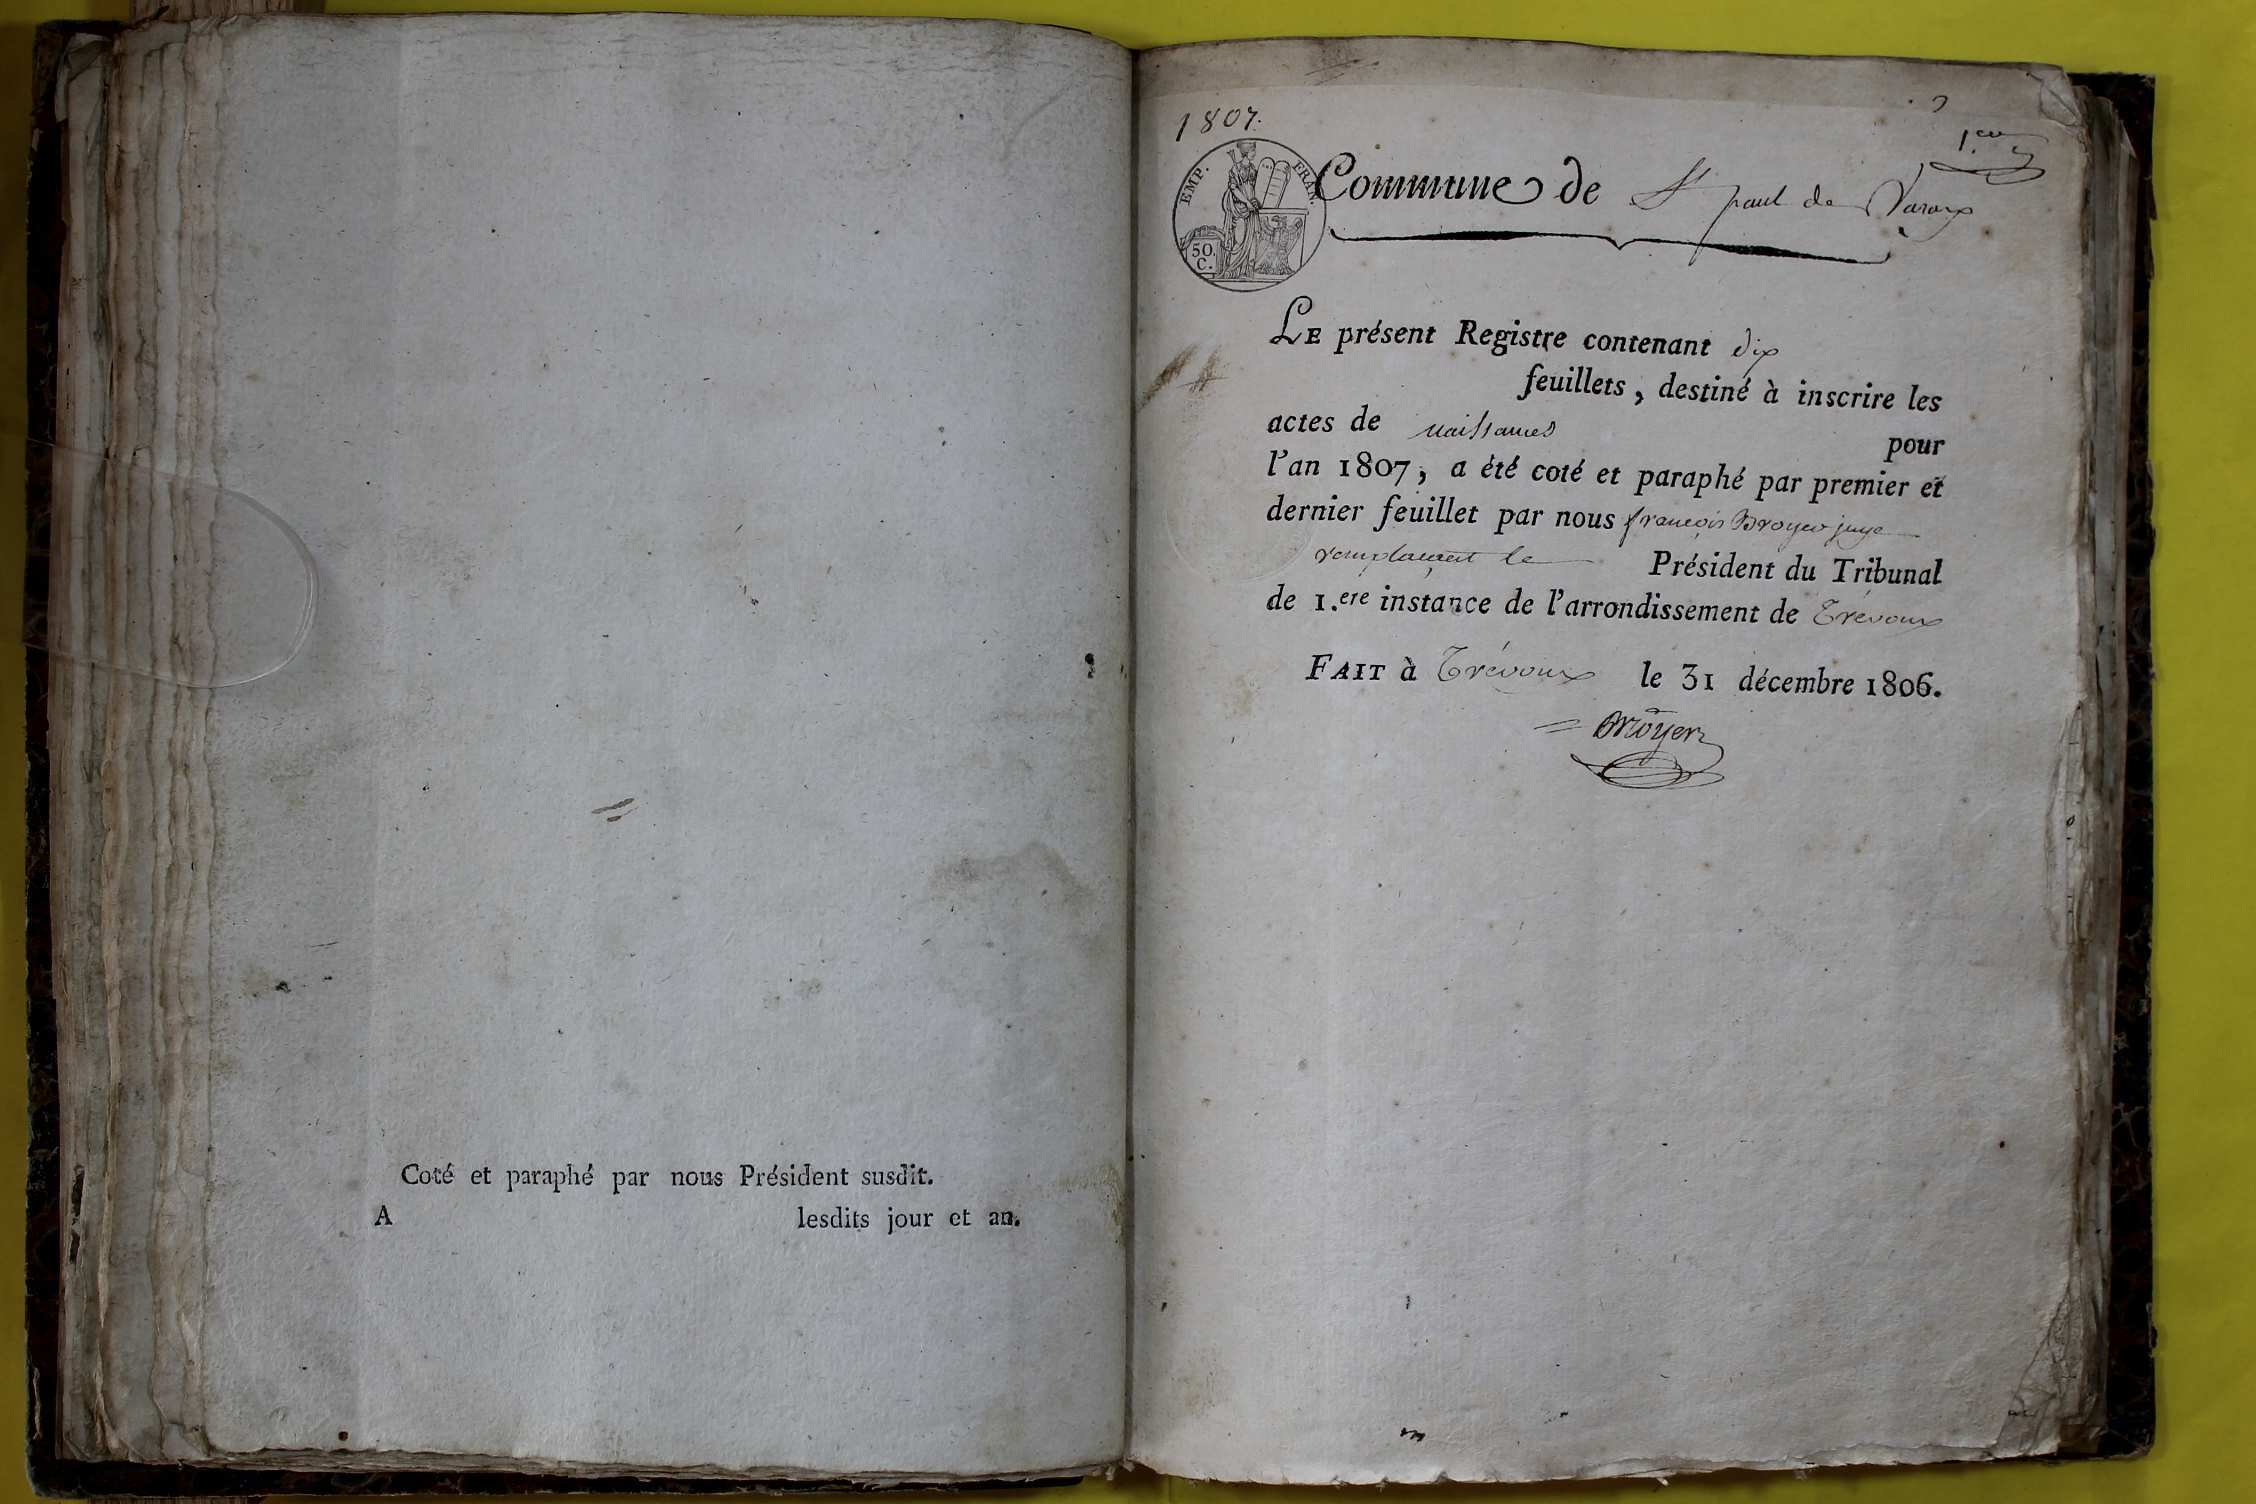 Coté et paraphé par nous Président susdit.
A lesdits jour et an.
1807.
1.er
EMP. FRAN.
50.
C.
Commune de St paul de Varax
LE présent Registre contenant dix
feuillets, destiné à inscrire les
actes de naissances pour
l'an 1807, a été coté et paraphé par premier et
dernier feuillet par nous françois Broyer juge
remplacant le Président du Tribunal
de 1.ere instance de l'arrondissement de Trévoux
FAIT à Trévoux le 31 décembre 1806.
Broyer